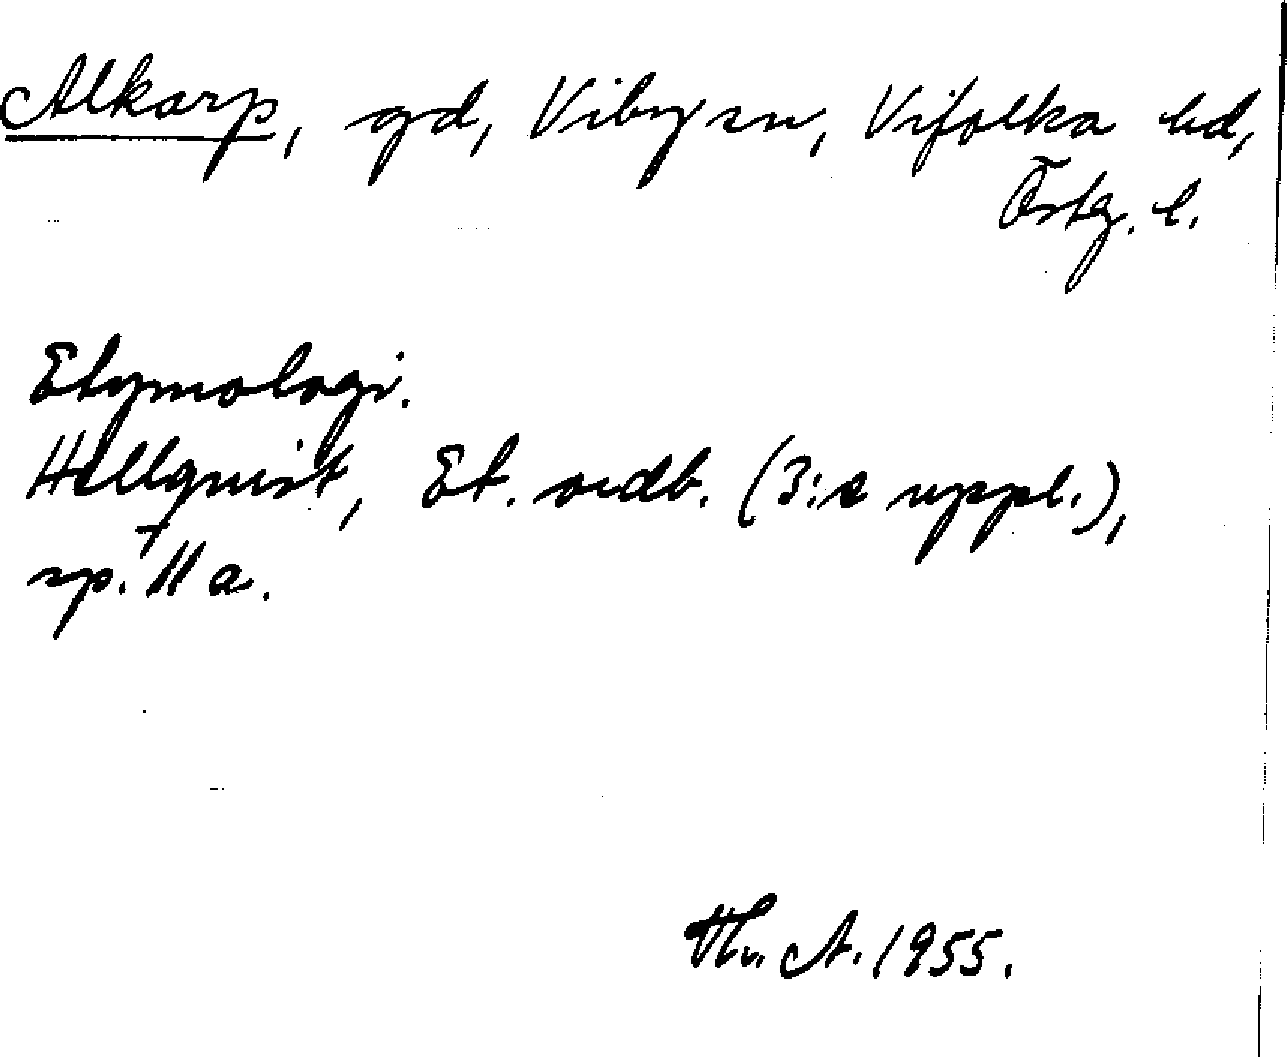 Alkarp, gd, Viby sn, Vifolka hd,
Östg. l.
Etymologi.
Hellquist, Et. ordb. (3:e uppl.),
sp. 11 a.
A. 1955.